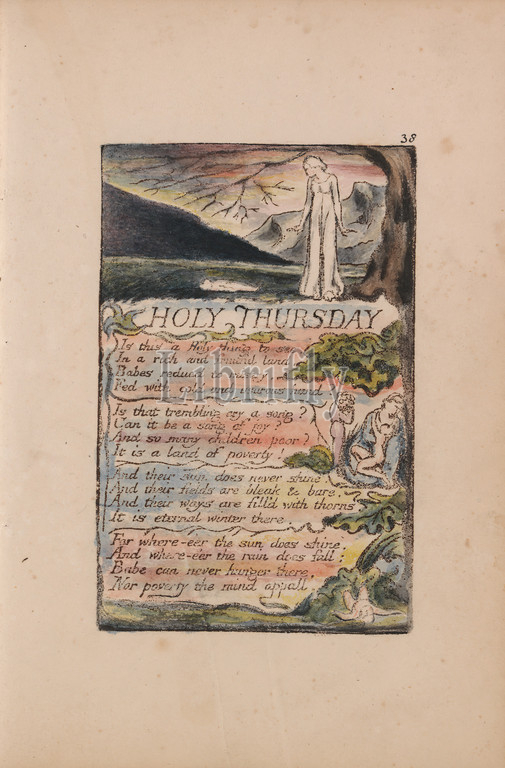 38
HOLY THURSDAY
Is this a Holy thing to see,
In a rich and fruitful land,
Babes reduced to misery,
Fed with cold and usurous hand?
Librifly
Is that trembling cry a song?
Can it be a song of joy?
And so many children poor?
It is a land of poverty!
And their sun does never shine.
And their fields are bleak & bare.
And their ways are fill'd with thorns
It is eternal winter there.
For where-e'er the sun does shine,
And where-e'er the rain does fall:
Babe can never hunger there,
Nor poverty the mind appall.